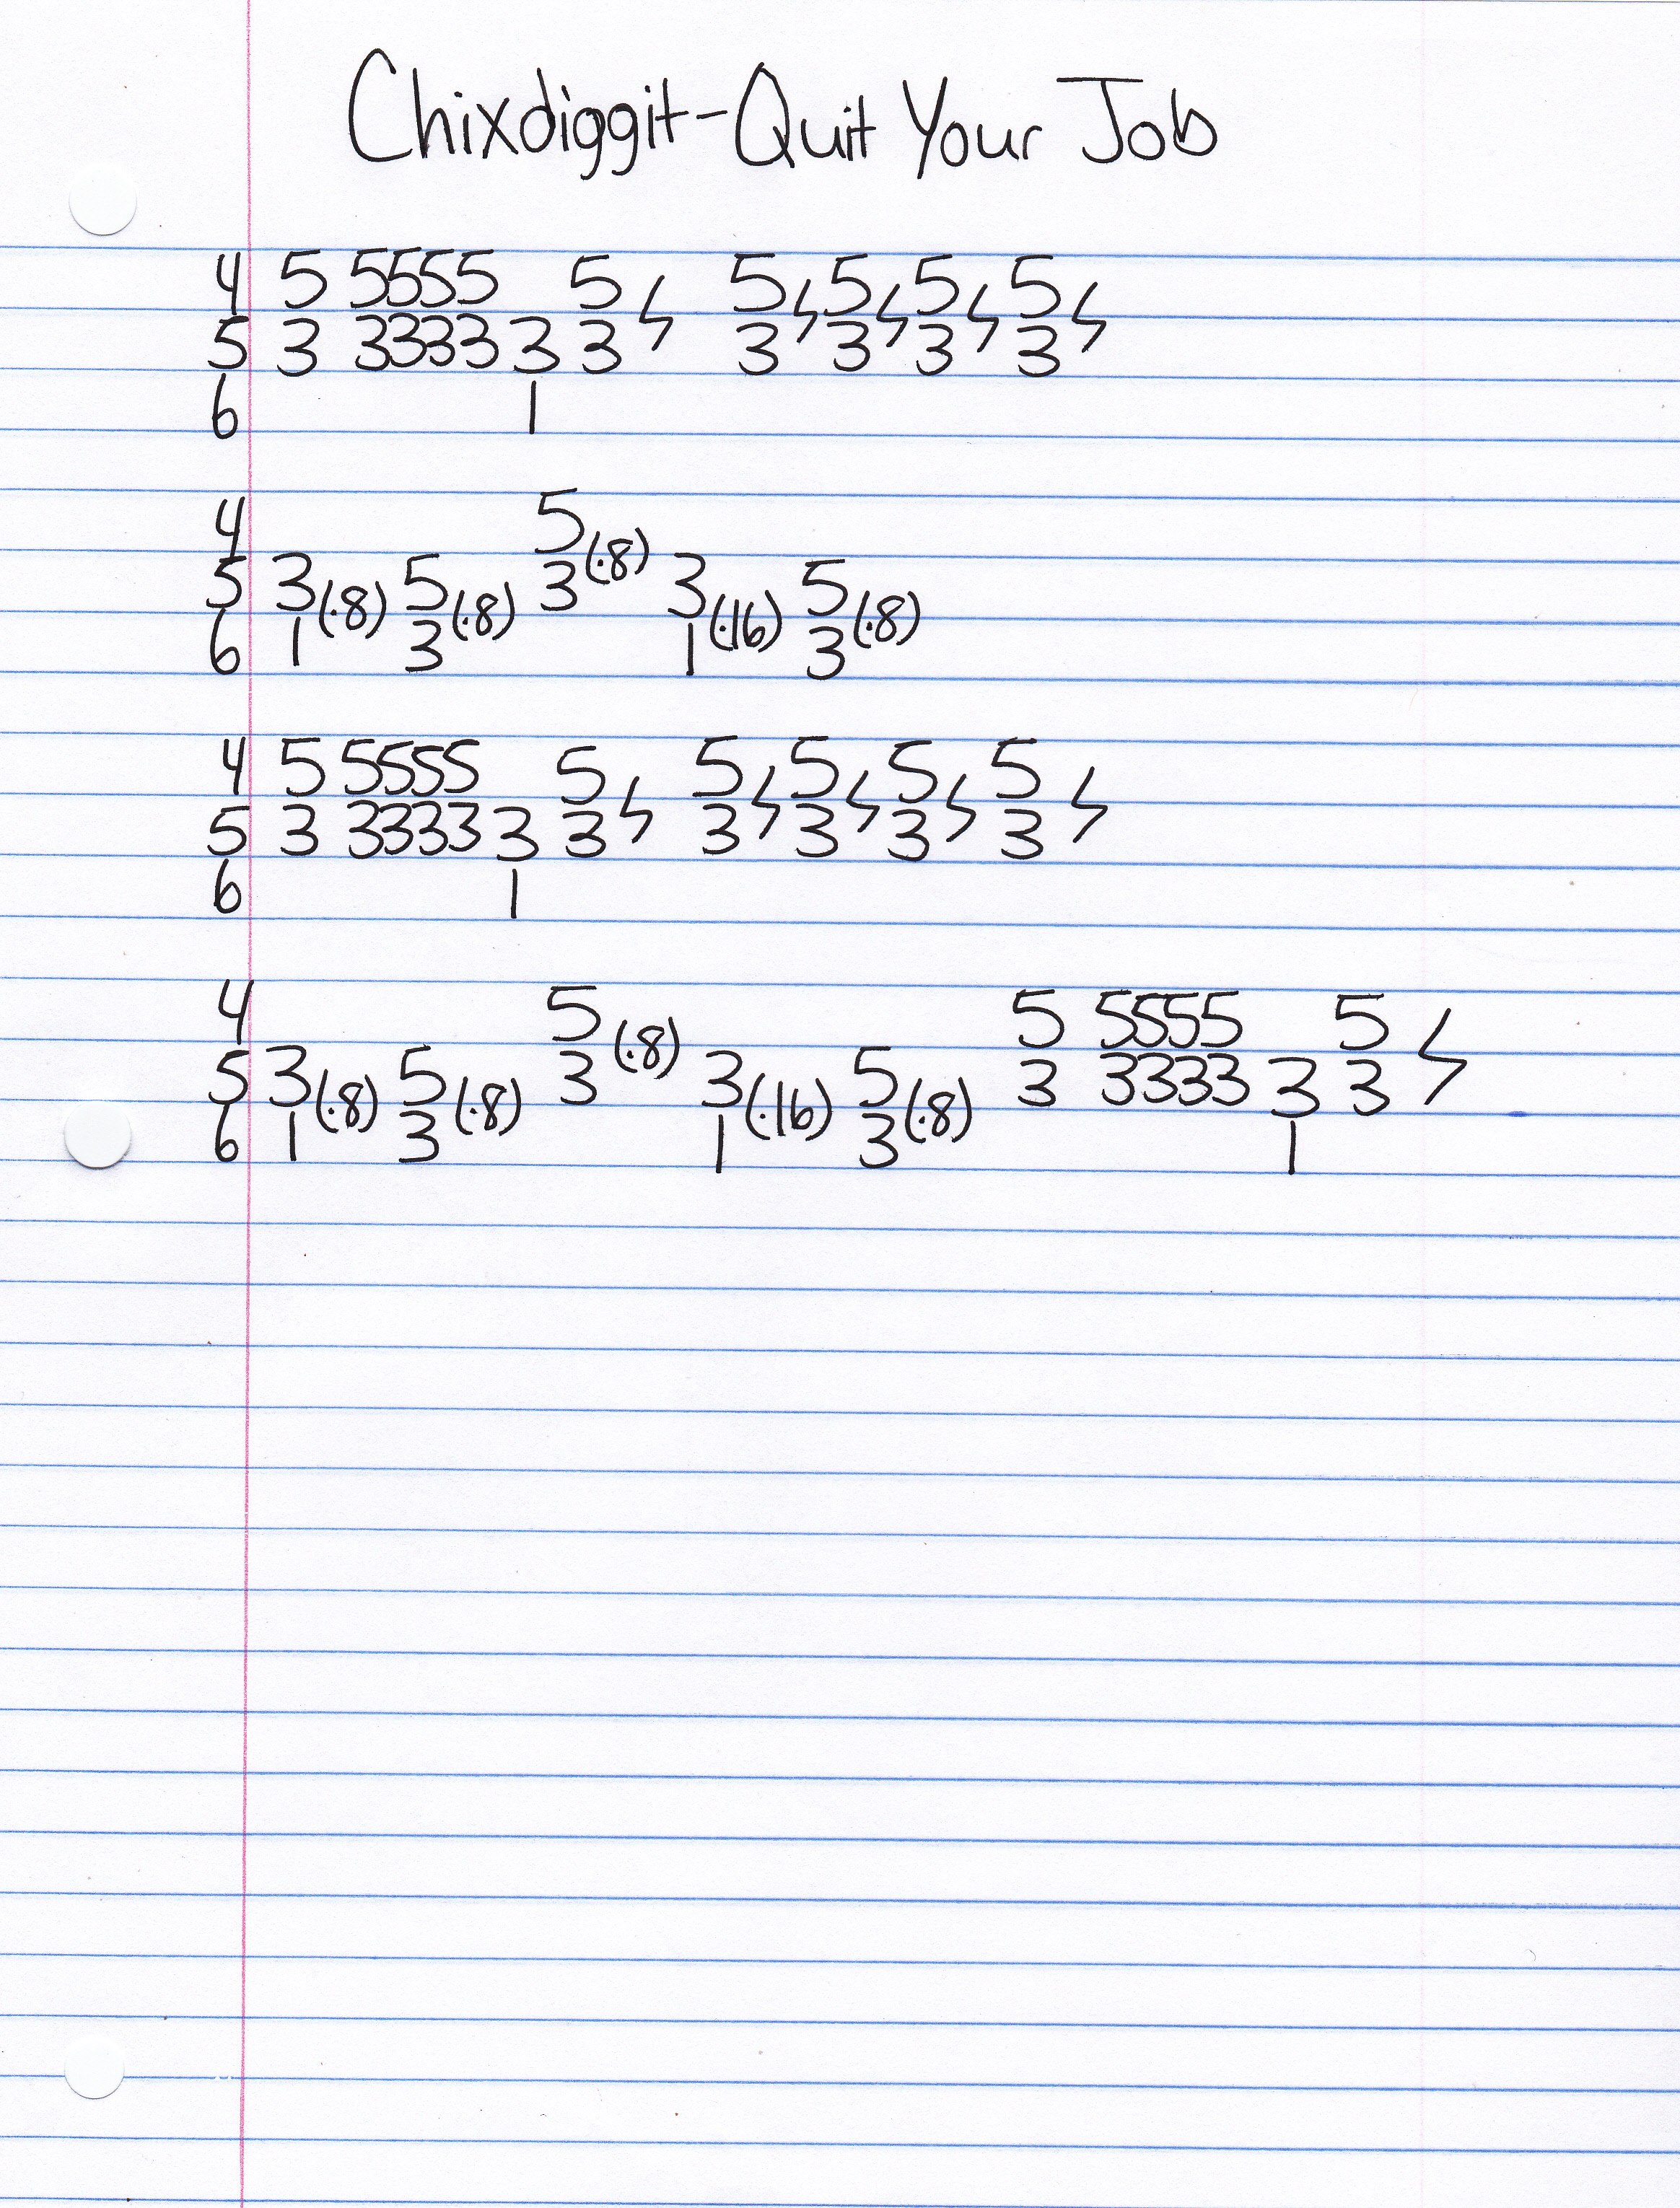 Chixdiggit-Quit Your Job
4 5 5555 5 ϟ 5 ϟ 5 ϟ 5 ϟ 5 ϟ
5 3 3333 3 3 3 3 3 3
6 1
4 5 (.8)
5 3 (.8) 5 (.8) 3 3 (.16) 5 (.8)
6 1 3 1 3
4 5 5555 5 ϟ 5 ϟ 5 ϟ 5 ϟ 5 ϟ
5 3 3333 3 3 3 3 3 3
6 1
4 5 (.8) 5 5555 5 ϟ
5 3 (.8) 5 (.8) 3 3 (.16) 5 (.8) 3 3333 3 3
6 1 3 1 3 1